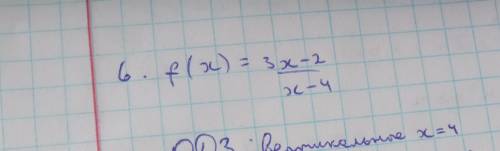 6. f(x) = 3x-2
x-4
ОДЗ: Вертикальные x=4